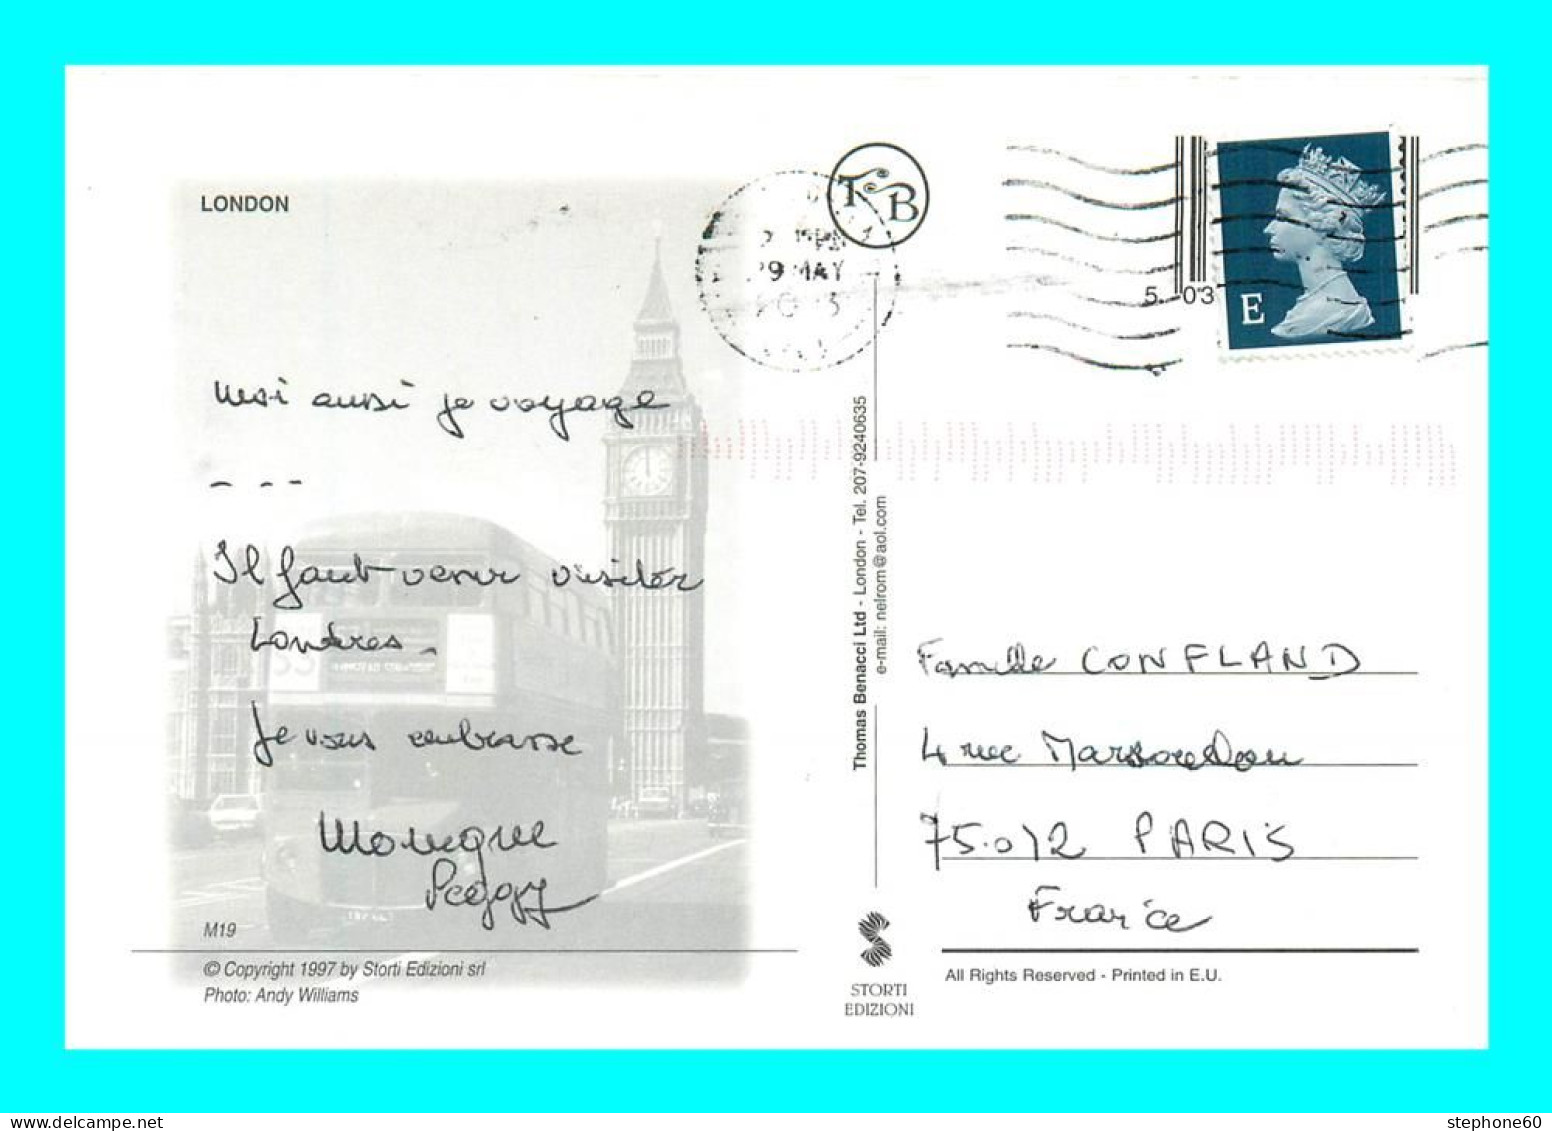 LONDON
TB
29 MAY
5. 03
E
moi aussi je voyage
- - -
Il faut venir visiter
Londres.
Je vous embrasse
Monique
Peggy
M19
© Copyright 1997 by Storti Edizioni srl
Photo: Andy Williams
Thomas Benacci Ltd - London - Tel. 207-9240635
e-mail: nelrom@aol.com
STORTI
EDIZIONI
Famille CONFLAND
4 rue
75.012 PARIS
France
All Rights Reserved - Printed in E.U.
stephone60